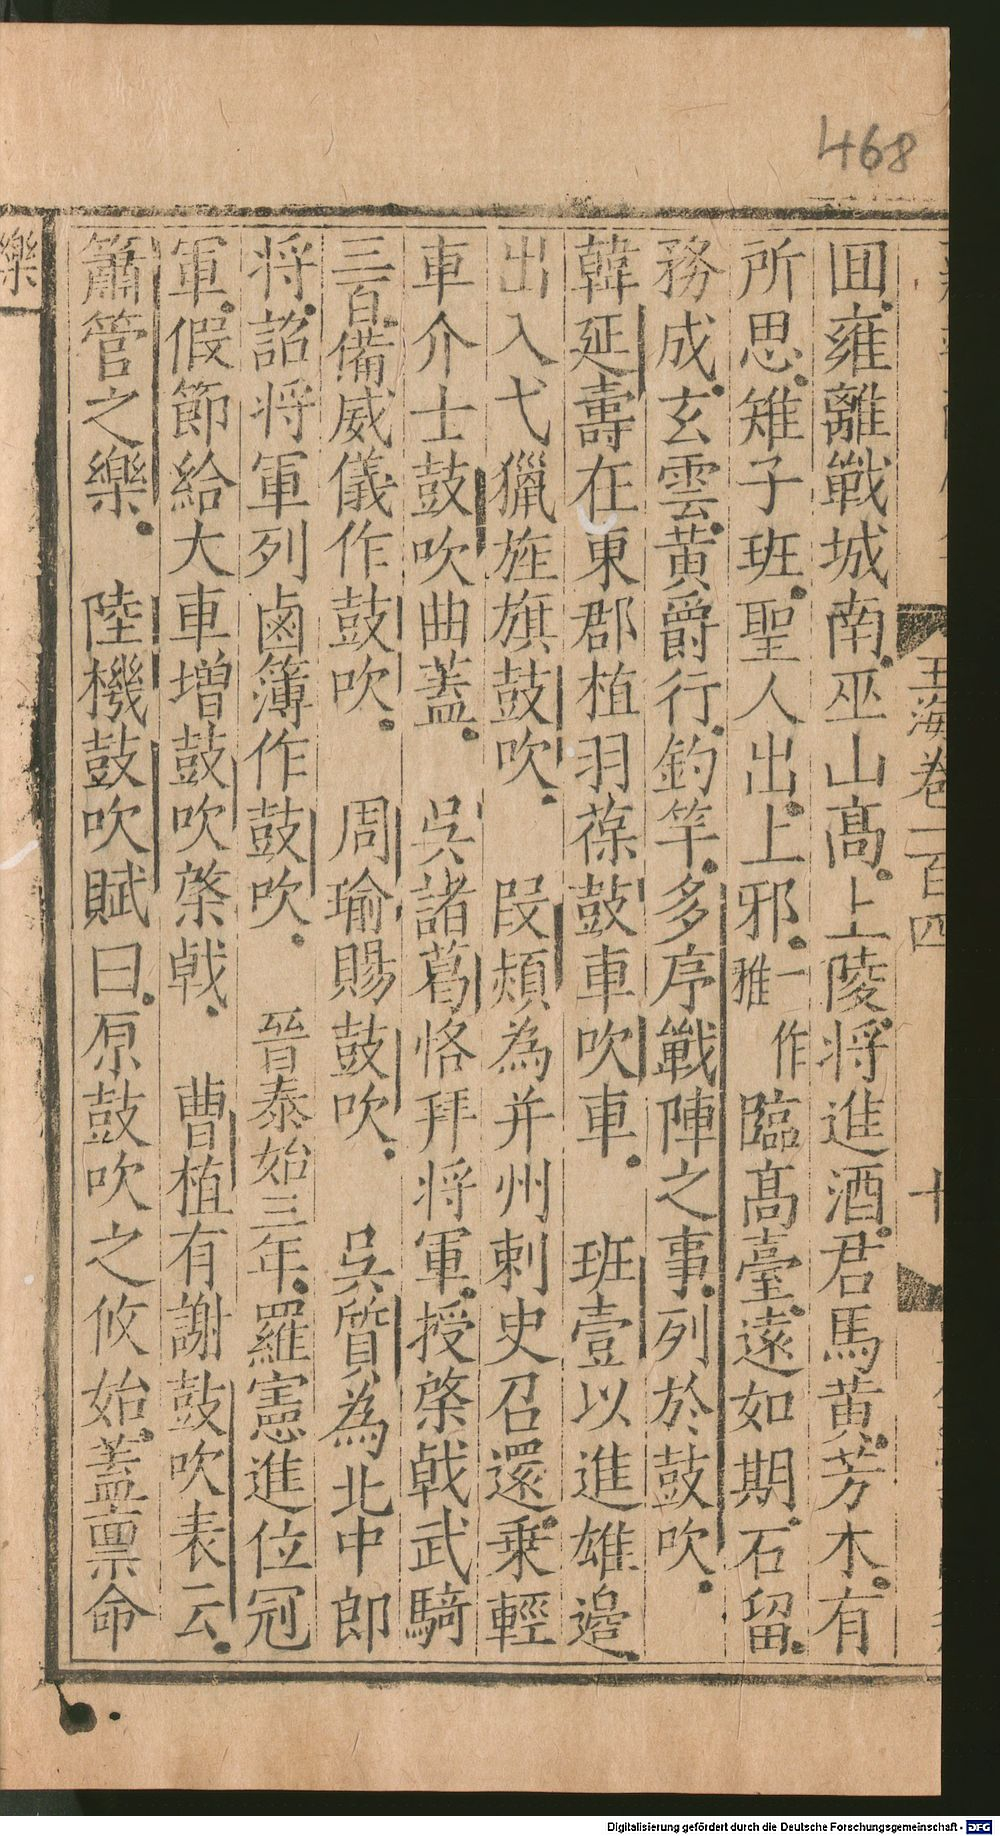 468
囬雍離戰城南巫山髙上陵将進酒君馬黄芳木有
所思雉子班聖人出上邪一作雅臨髙臺逺如期石留
務成玄雲黄爵行釣竿多序戰陣之事列於鼓吹
韓延壽在東郡植羽葆鼓車吹車 班壹以進雄邉
出入弋獵旌旗鼓吹 段熲為并州刺史召還乗輕
車介士鼓吹曲蓋 呉諸葛恪拜将軍授棨戟武騎
三百備威儀作鼓吹 周瑜賜鼓吹 呉質為北中郎
将詔将軍列鹵簿作鼓吹 晉泰始三年羅憲進位冠
軍假節給大車增鼓吹棨戟 曹植有謝鼓吹表云
簫管之樂 陸機鼓吹賦曰原鼓吹之攸始蓋禀命
玉海卷一百四
十
樂
Digitalisierung gefördert durch die Deutsche Forschungsgemeinschaft - DFG